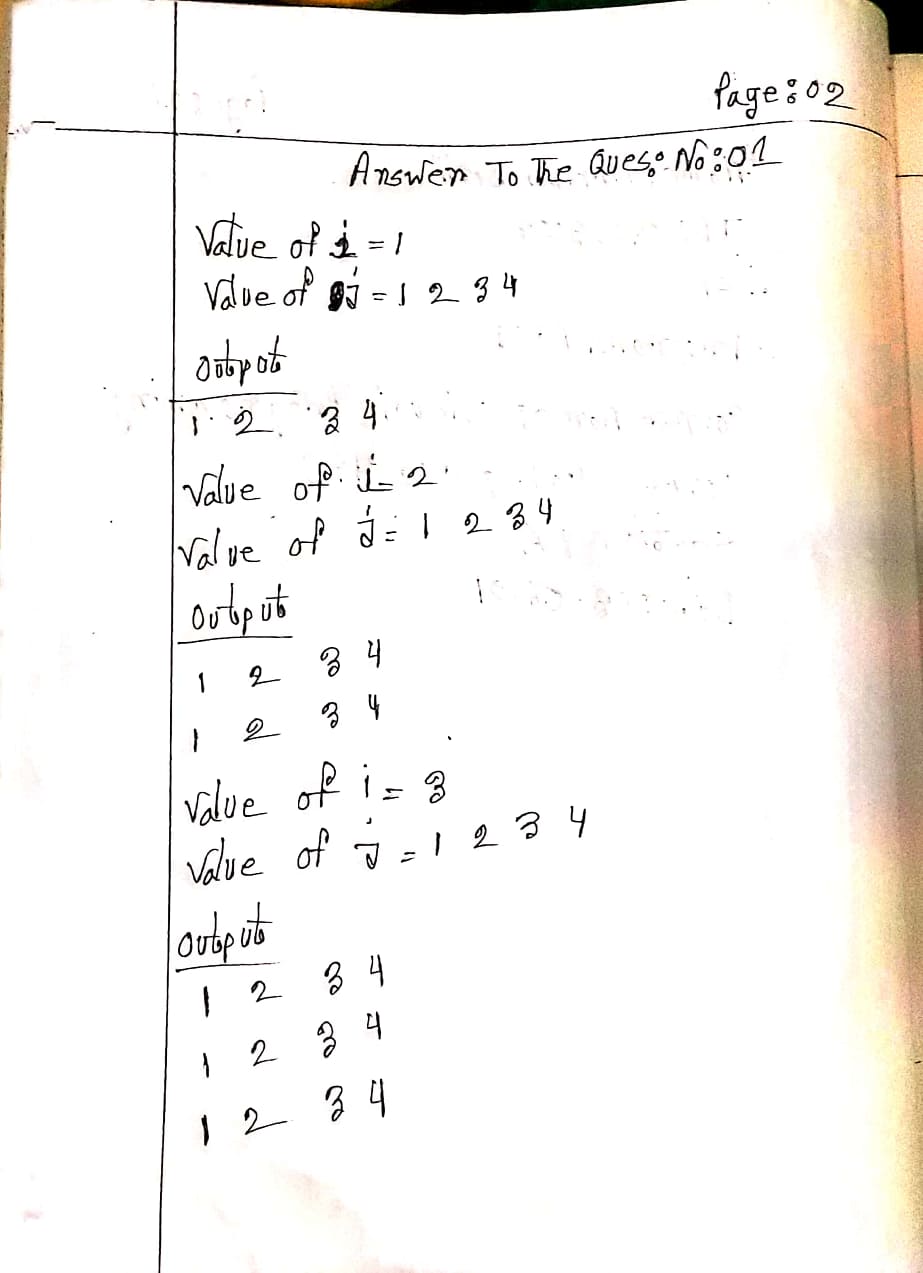 Page: 02
Answer To The Ques: No: 01
Value of i = 1
Value of j = 1 2 3 4
Output
1 2 3 4
Value of i = 2
Value of j = 1 2 3 4
Output
1 2 3 4
1 2 3 4
Value of i = 3
Value of j = 1 2 3 4
Output
1 2 3 4
1 2 3 4
1 2 3 4